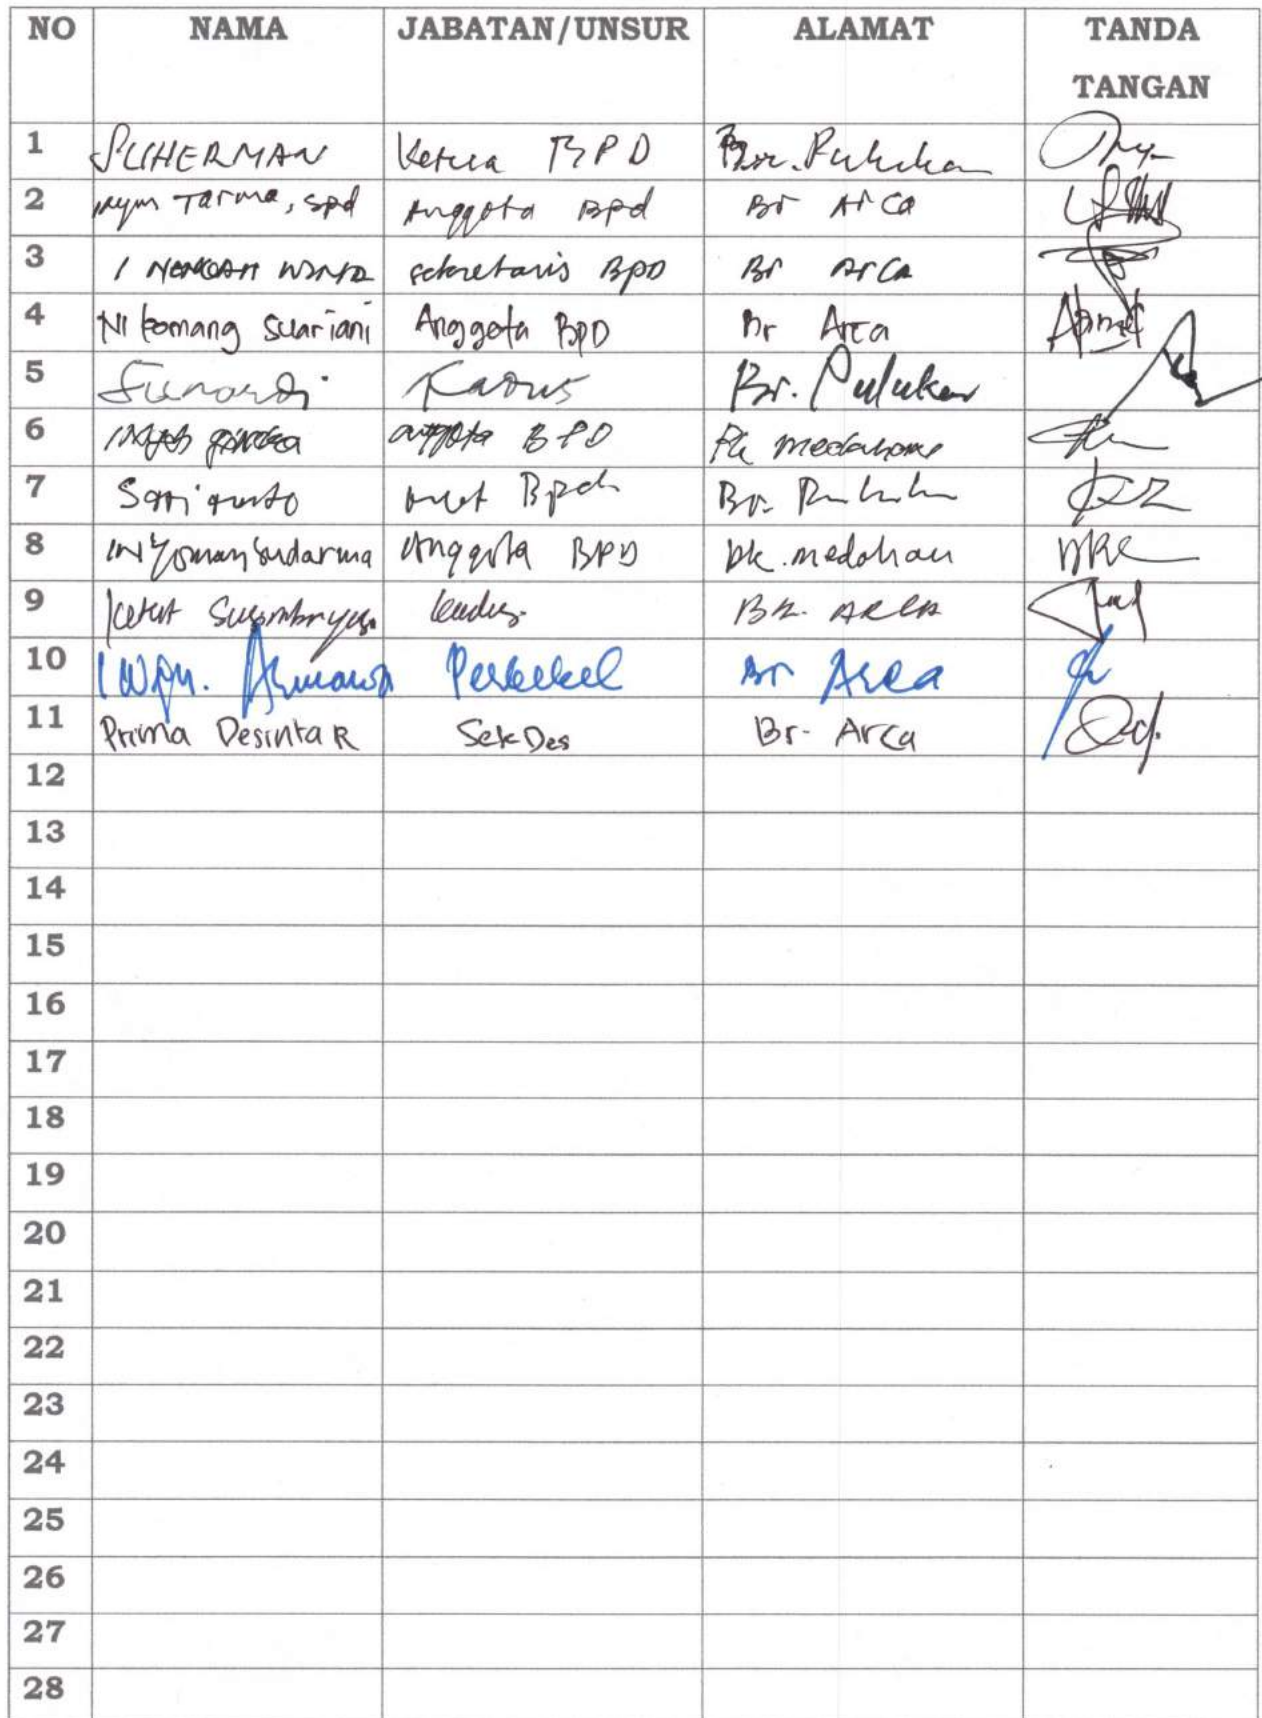 NO NAMA JABATAN/UNSUR ALAMAT TANDA
TANGAN
1 SUHERMAN Ketua BPD Br. Pulukan
2 Nym Tarma, Spd Anggota Bpd Br Arca
3 I NENGAH sekretaris BPD Br Arca
4 Ni Komang Suariani Anggota BPD Br Arca
5 Sunardi Kadus Br. Pulukan
6 anggota BPD
7 Br. Pulukan
8 I Nyoman Sudarma Anggota BPD Dk. medahan
9 Ketut Kadus Br. ARCA
10 I Wyn. Armawa Perbekel Br Arca
11 Prima Desinta R SekDes Br. Arca
12
13
14
15
16
17
18
19
20
21
22
23
24
25
26
27
28